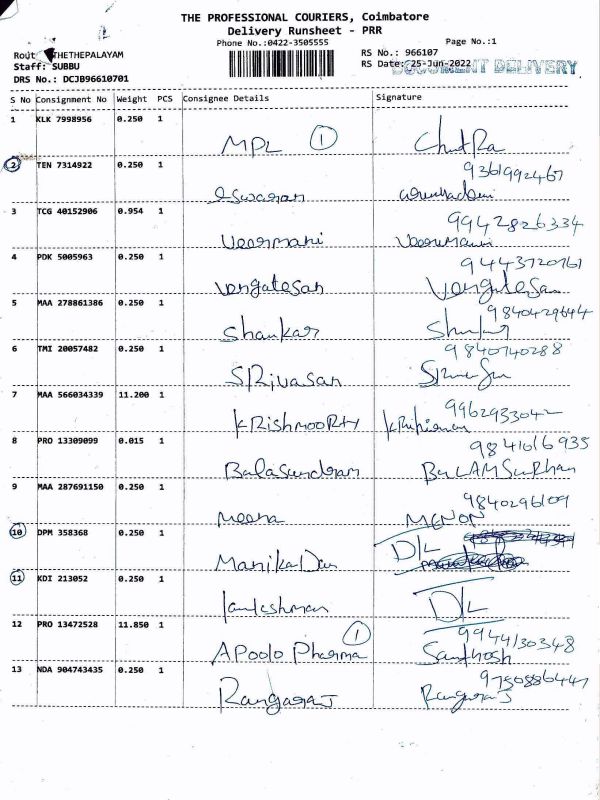 THE PROFESSIONAL COURIERS, Coimbatore
Delivery Runsheet - PRR
Phone No.:0422-3505555
Page No.:1
Rout THETHEPALAYAM
RS No.: 966107
Staff: SUBBU
RS Date: 25-Jun-2022
DOCUMENT DELIVERY
DRS No.: DCJB96610701
S No Consignment No Weight PCS Consignee Details Signature
1 KLK 7998956 0.250 1
MPL 1 Chitra
2 TEN 7314922 0.250 1 9361992467
eswaran
3 TCG 40152906 0.954 1 9942826334
veermani
4 PDK 5005963 0.250 1 9443720761
vengatesan Vengatesan
5 MAA 278861386 0.250 1 9840429644
Shankar
6 TMI 20057482 0.250 1 9840740288
SRivasan
7 MAA 566034339 11.200 1 9962933042
KRishmooRty
8 PRO 13309099 0.015 1 9841016935
Balasundram
9 MAA 287691150 0.250 1 9840296109
meena MENON
10 DPM 358368 0.250 1
Manikadan D/L
11 KDI 213052 0.250 1
D/L
12 PRO 13472528 11.850 1 9944130348
APoolo Pharma 1 Santhosh
13 NDA 904743435 0.250 1
RangaraJ RangaraJ